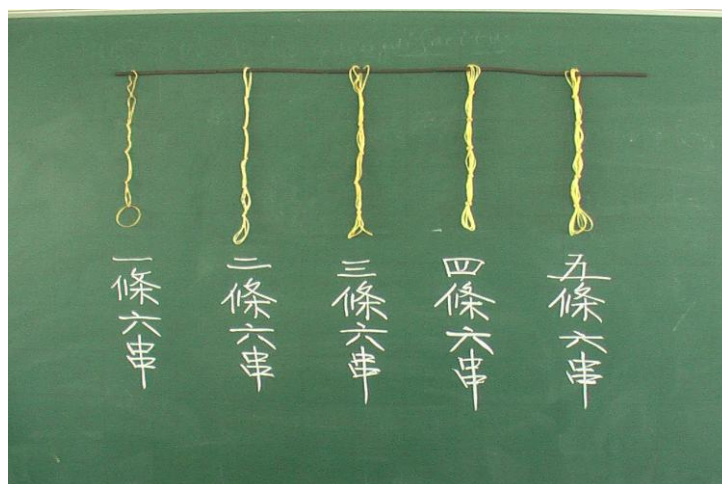 一條六串
二條六串
三條六串
四條六串
五條六串